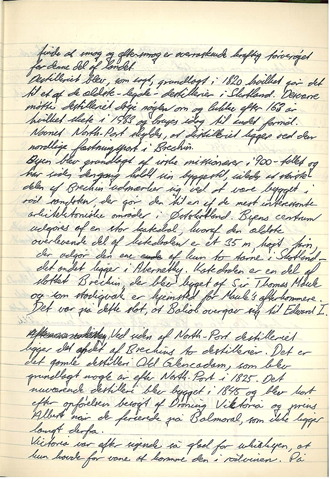 finde at smag og eftersmag er overraskende kraftig
for denne del af landet.
Destilleriet blev, som sagt, grundlagt i 1820 hvilket gør det
til et af de ældste - legale - destillerier i Skotland. Desværre
måtte destilleriet dreje nøglen om og lukke efter 163 år
hvilket skete i 1983 og bruges idag til andet formål.
Navnet North-Port skyldes, at destilleriet ligger ved den
nordlige fæstningsport i Brechin.
Byen blev grundlagt af irske missionærer i 900-tallet og
har siden dengang haft sin byggestil,
delen af Brechin udmærker sig ved at være bygget i
rød sandsten, der gør den til en af de mest interessante
arkitektoniske områder i Østskotland. Byens centrum
udgøres af en stor katedral, hvoraf den ældste
overlevende del af katedralen er et 35 m højt tårn,
der udgør den ene af kun to tårne i Skotland -
det andet ligger i Abernethy. Katedralen er en del af
slottet Brechin, der blev bygget af Sir Thomas Maule
og som stadigvæk er hjemsted for Maule's efterkommere.
Det var på dette slot, at Baliol overgav sig til Edward I.
Ved siden af North-Port destilleriet
ligger det andet af Brechins to destillerier. Det er
det gamle destilleri Old Glencadam, som blev
grundlagt nogle år efter North-Port i 1825. Det
nuværende destilleri blev bygget i 1895 og blev kort
efter åbningen besøgt af Dronning Victoria og prins
Albert når de ferierede på Balmoral, som ikke ligger
langt derfra.
Victoria var efter sigende så glad for whiskyen, at
hun havde for vane at komme den i rødvinen. På